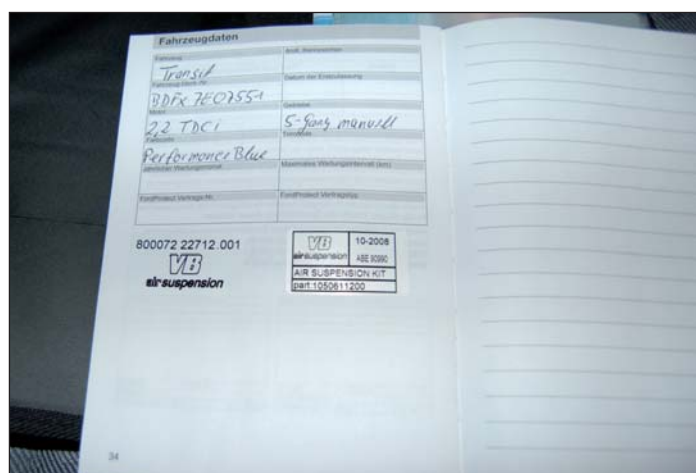 Fahrzeugdaten
Fahrzeug
Amtl. Kennzeichen
Transit
Datum der Erstzulassung
2,2 TDCi
Getriebe
5-Gang manuell
Performance Blue
Jährlicher Wartungsmonat
Maximales Wartungsintervall (km)
FordProtect Vertrags-Nr.
FordProtect Vertragstyp
800072 22712.001
VB
airsuspension
VB
airsuspension
10-2008
ABE 90990
AIR SUSPENSION KIT
part:1050611200
34